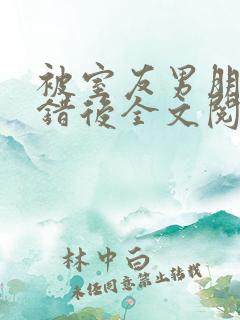 被室友男朋
错后全文阅
林中白
未经同意禁止转载